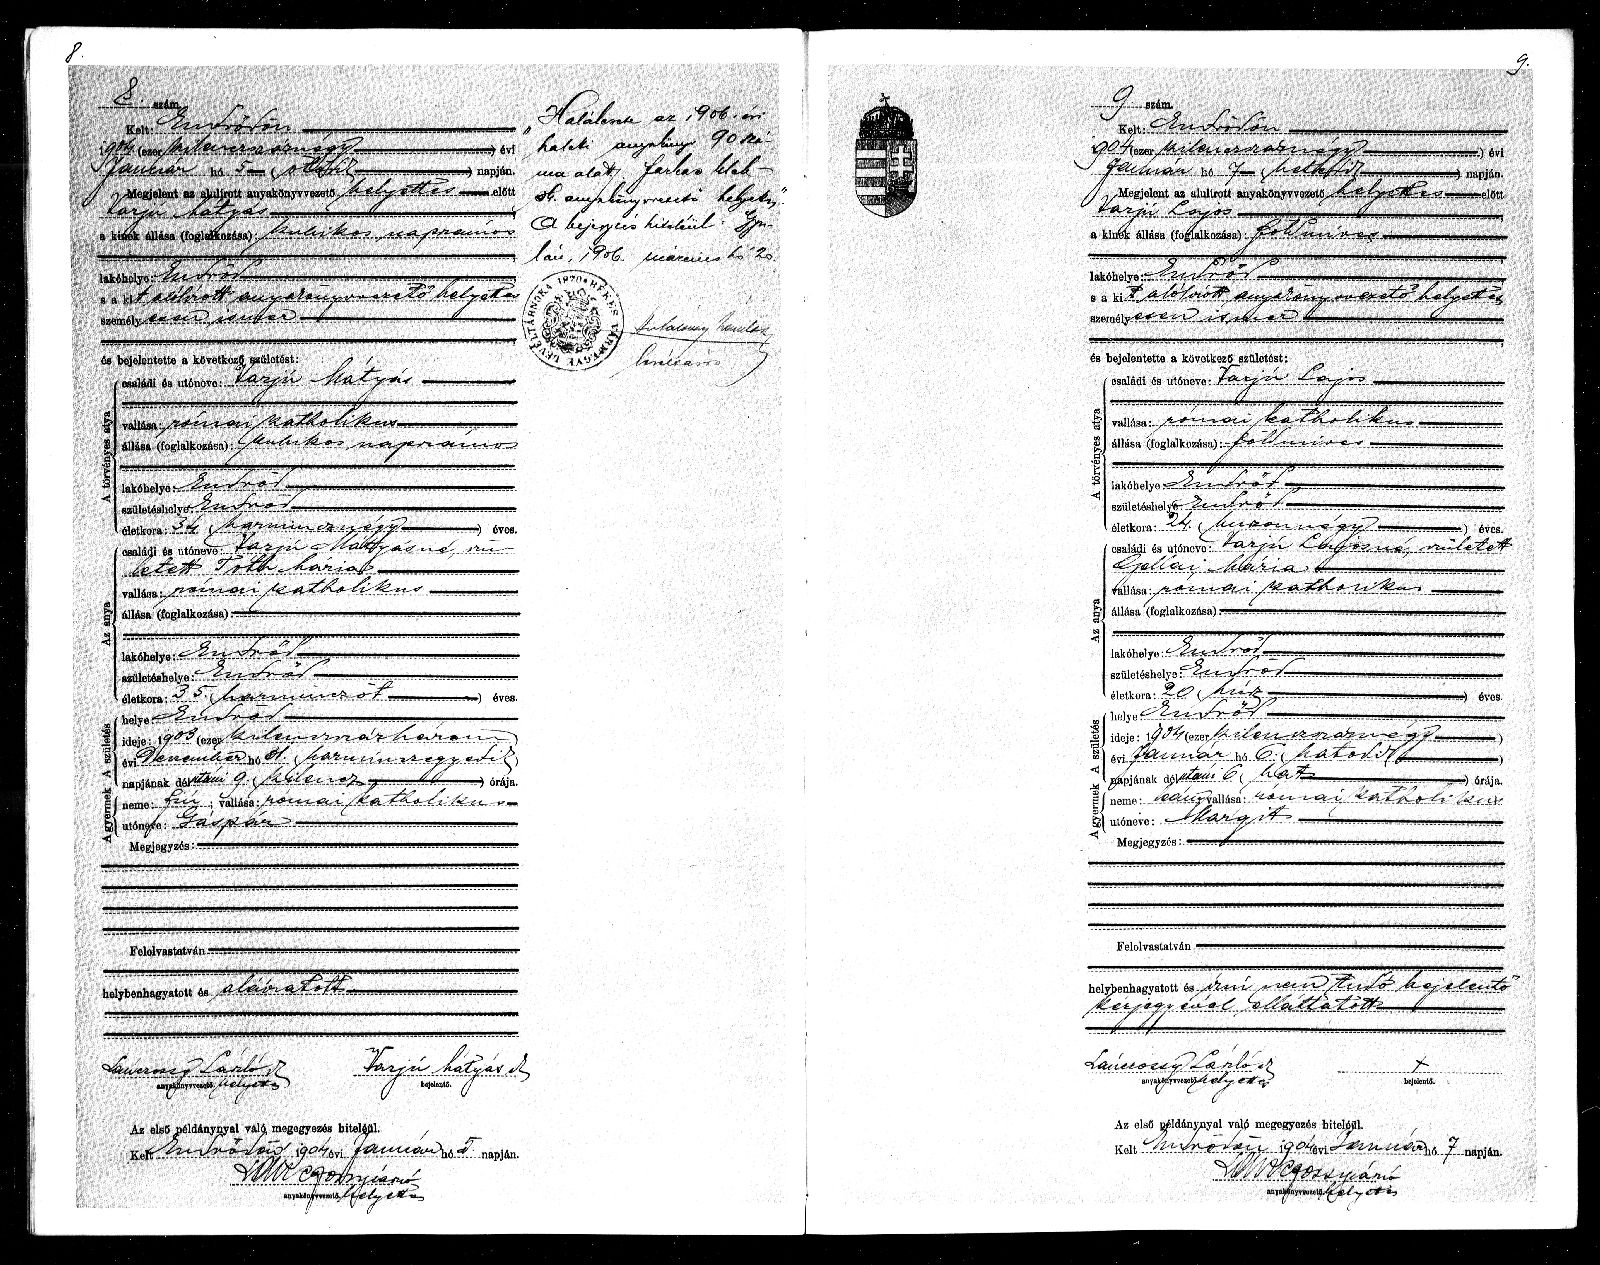 8.
8. szám.
Kelt: Endrődön
1904 (ezer kilenczszáznégy) évi
Január hó 5 (ötödik) napján.
Megjelent az alulirott anyakönyvvezető helyettes előtt
Varjú Mátyás
a kinek állása (foglalkozása): kubikos napszámos
lakóhelye: Endrőd
s a kit alólirott anyakönyvvezető helyettes
személyesen ismer
és bejelentette a következő születést:
A törvényes atya
családi és utóneve: Varjú Mátyás
vallása: római katholikus
állása (foglalkozása): kubikos napszámos
lakóhelye: Endrőd
születéshelye: Endrőd
életkora: 34 (harmincznégy) éves.
Az anya
családi és utóneve: Varjú Mátyásné, szü-
letett Tóth Mária
vallása: római katholikus
állása (foglalkozása):
lakóhelye: Endrőd
születéshelye: Endrőd
életkora: 35 (harminczöt) éves.
A gyermek A születés
helye: Endrőd
ideje: 1903 (ezer kilenczszázhárom)
évi Deczember hó 31 (harminczegyedik)
napjának délutáni 9 (kilencz) órája.
neme: fiú; vallása: római katholikus
utóneve: Gáspár
Megjegyzés:
Felolvastatván
helybenhagyatott és aláiratott
László sk
anyakönyvvezető helyettes
Varjú Mátyás sk
bejelentő.
Az első példánynyal való megegyezés hiteléül.
Kelt Endrődön 1904 évi Január hó 5 napján.
anyakönyvvezető helyettes
"Halálesete az 1906. évi
halotti anyakönyv 90 szá-
ma alatt. Farkas
sk. anyakönyvvezető helyettes."
A bejegyzés hiteléül: Gyu-
lán, 1906. márczius hó 2
BÉKÉS VÁRMEGYE LEVÉLTÁRNOKA 1870
9.
9 szám.
Kelt: Endrődön
1904 (ezer kilenczszáznégy) évi
Január hó 7 (hetedik) napján.
Megjelent az alulirott anyakönyvvezető helyettes előtt
Varjú Lajos
a kinek állása (foglalkozása): földmives
lakóhelye: Endrőd
s a kit alólirott anyakönyvvezető helyettes
személyesen ismer
és bejelentette a következő születést:
A törvényes atya
családi és utóneve: Varjú Lajos
vallása: római katholikus
állása (foglalkozása): földmives
lakóhelye: Endrőd
születéshelye: Endrőd
életkora: 24. (huszonnégy) éves.
Az anya
családi és utóneve: Varjú Lajosné, született
Gellai Mária
vallása: római katholikus
állása (foglalkozása):
lakóhelye: Endrőd
születéshelye: Endrőd
életkora: 20 (húsz) éves.
A gyermek A születés
helye: Endrőd
ideje: 1904 (ezer kilenczszáznégy)
évi Január hó 6 (hatodik)
napjának délutáni 6 (hat) órája.
neme: leány vallása: római katholikus
utóneve: Margit
Megjegyzés:
Felolvastatván
helybenhagyatott és irni nem tudó bejelentő
kézjegyével elláttatott
László sk
anyakönyvvezető helyettes
+
bejelentő.
Az első példánynyal való megegyezés hiteléül.
Kelt Endrődön 1904 évi Január hó 7 napján.
anyakönyvvezető helyettes